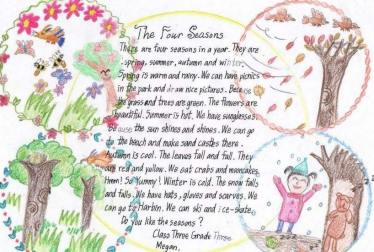 The Four Seasons
There are four seasons in a year. They are
spring, summer, autumn and winter.
Spring is warm and rainy. We can have picnics
in the park and draw nice pictures. Because
the grass and trees are green. The flowers are
beautiful. Summer is hot. We have sunglasses.
Because the sun shines and shines. We can go
to the beach and make sand castles there.
Autumn is cool. The leaves fall and fall. They
are red and yellow. We eat crabs and mancakes.
Hmm! So Yummy! Winter is cold. The snow falls
and falls. We have hats, gloves and scarves. We
can go to Harbin. We can ski and ice-skate.
Do you like the seasons?
Class Three Grade Three
Megan.